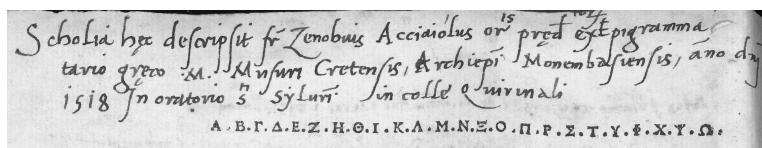 Scholia hęc descripsit fr̄ Zenobius Acciaiolus orīs pręd̄ ex Epigramma
tario gręco .M. Musuri Cretensis, Archiepī Monembasiensis, āno dnj
1518 In oratorio s̄ Sylurī in colle Quirinali
Α.Β.Γ.Δ.Ε.Ζ.Η.Θ.Ι.Κ.Λ.Μ.Ν.Ξ.Ο.Π.Ρ.Σ.Τ.Υ.Φ.Χ.Ψ.Ω.